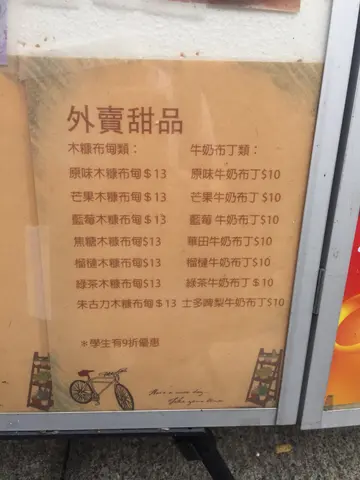 外賣甜品
木糠布甸類： 牛奶布丁類：
原味木糠布甸$13 原味牛奶布丁$10
芒果木糠布甸$13 芒果牛奶布丁$10
藍莓木糠布甸$13 藍莓牛奶布丁$10
焦糖木糠布甸$13 華田牛奶布丁$10
榴槤木糠布甸$13 榴槤牛奶布丁$10
綠茶木糠布甸$13 綠茶牛奶布丁$10
朱古力木糠布甸$13 士多啤梨牛奶布丁$10
*學生有9折優惠